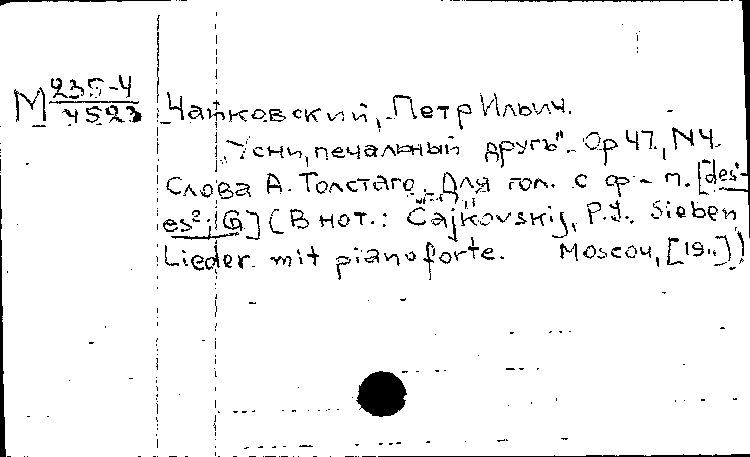 М 235-4
4523
Чайковский, Петр Ильич.
„Усни, печальный другъ". Ор 47, N4.
Слова А. Толстаго. Для гол. с ф-п. [des'-
es²; G] (В нот.: Čajkovskij, P.I. Sieben
Lieder mit pianoforte. Moscou, [19..])